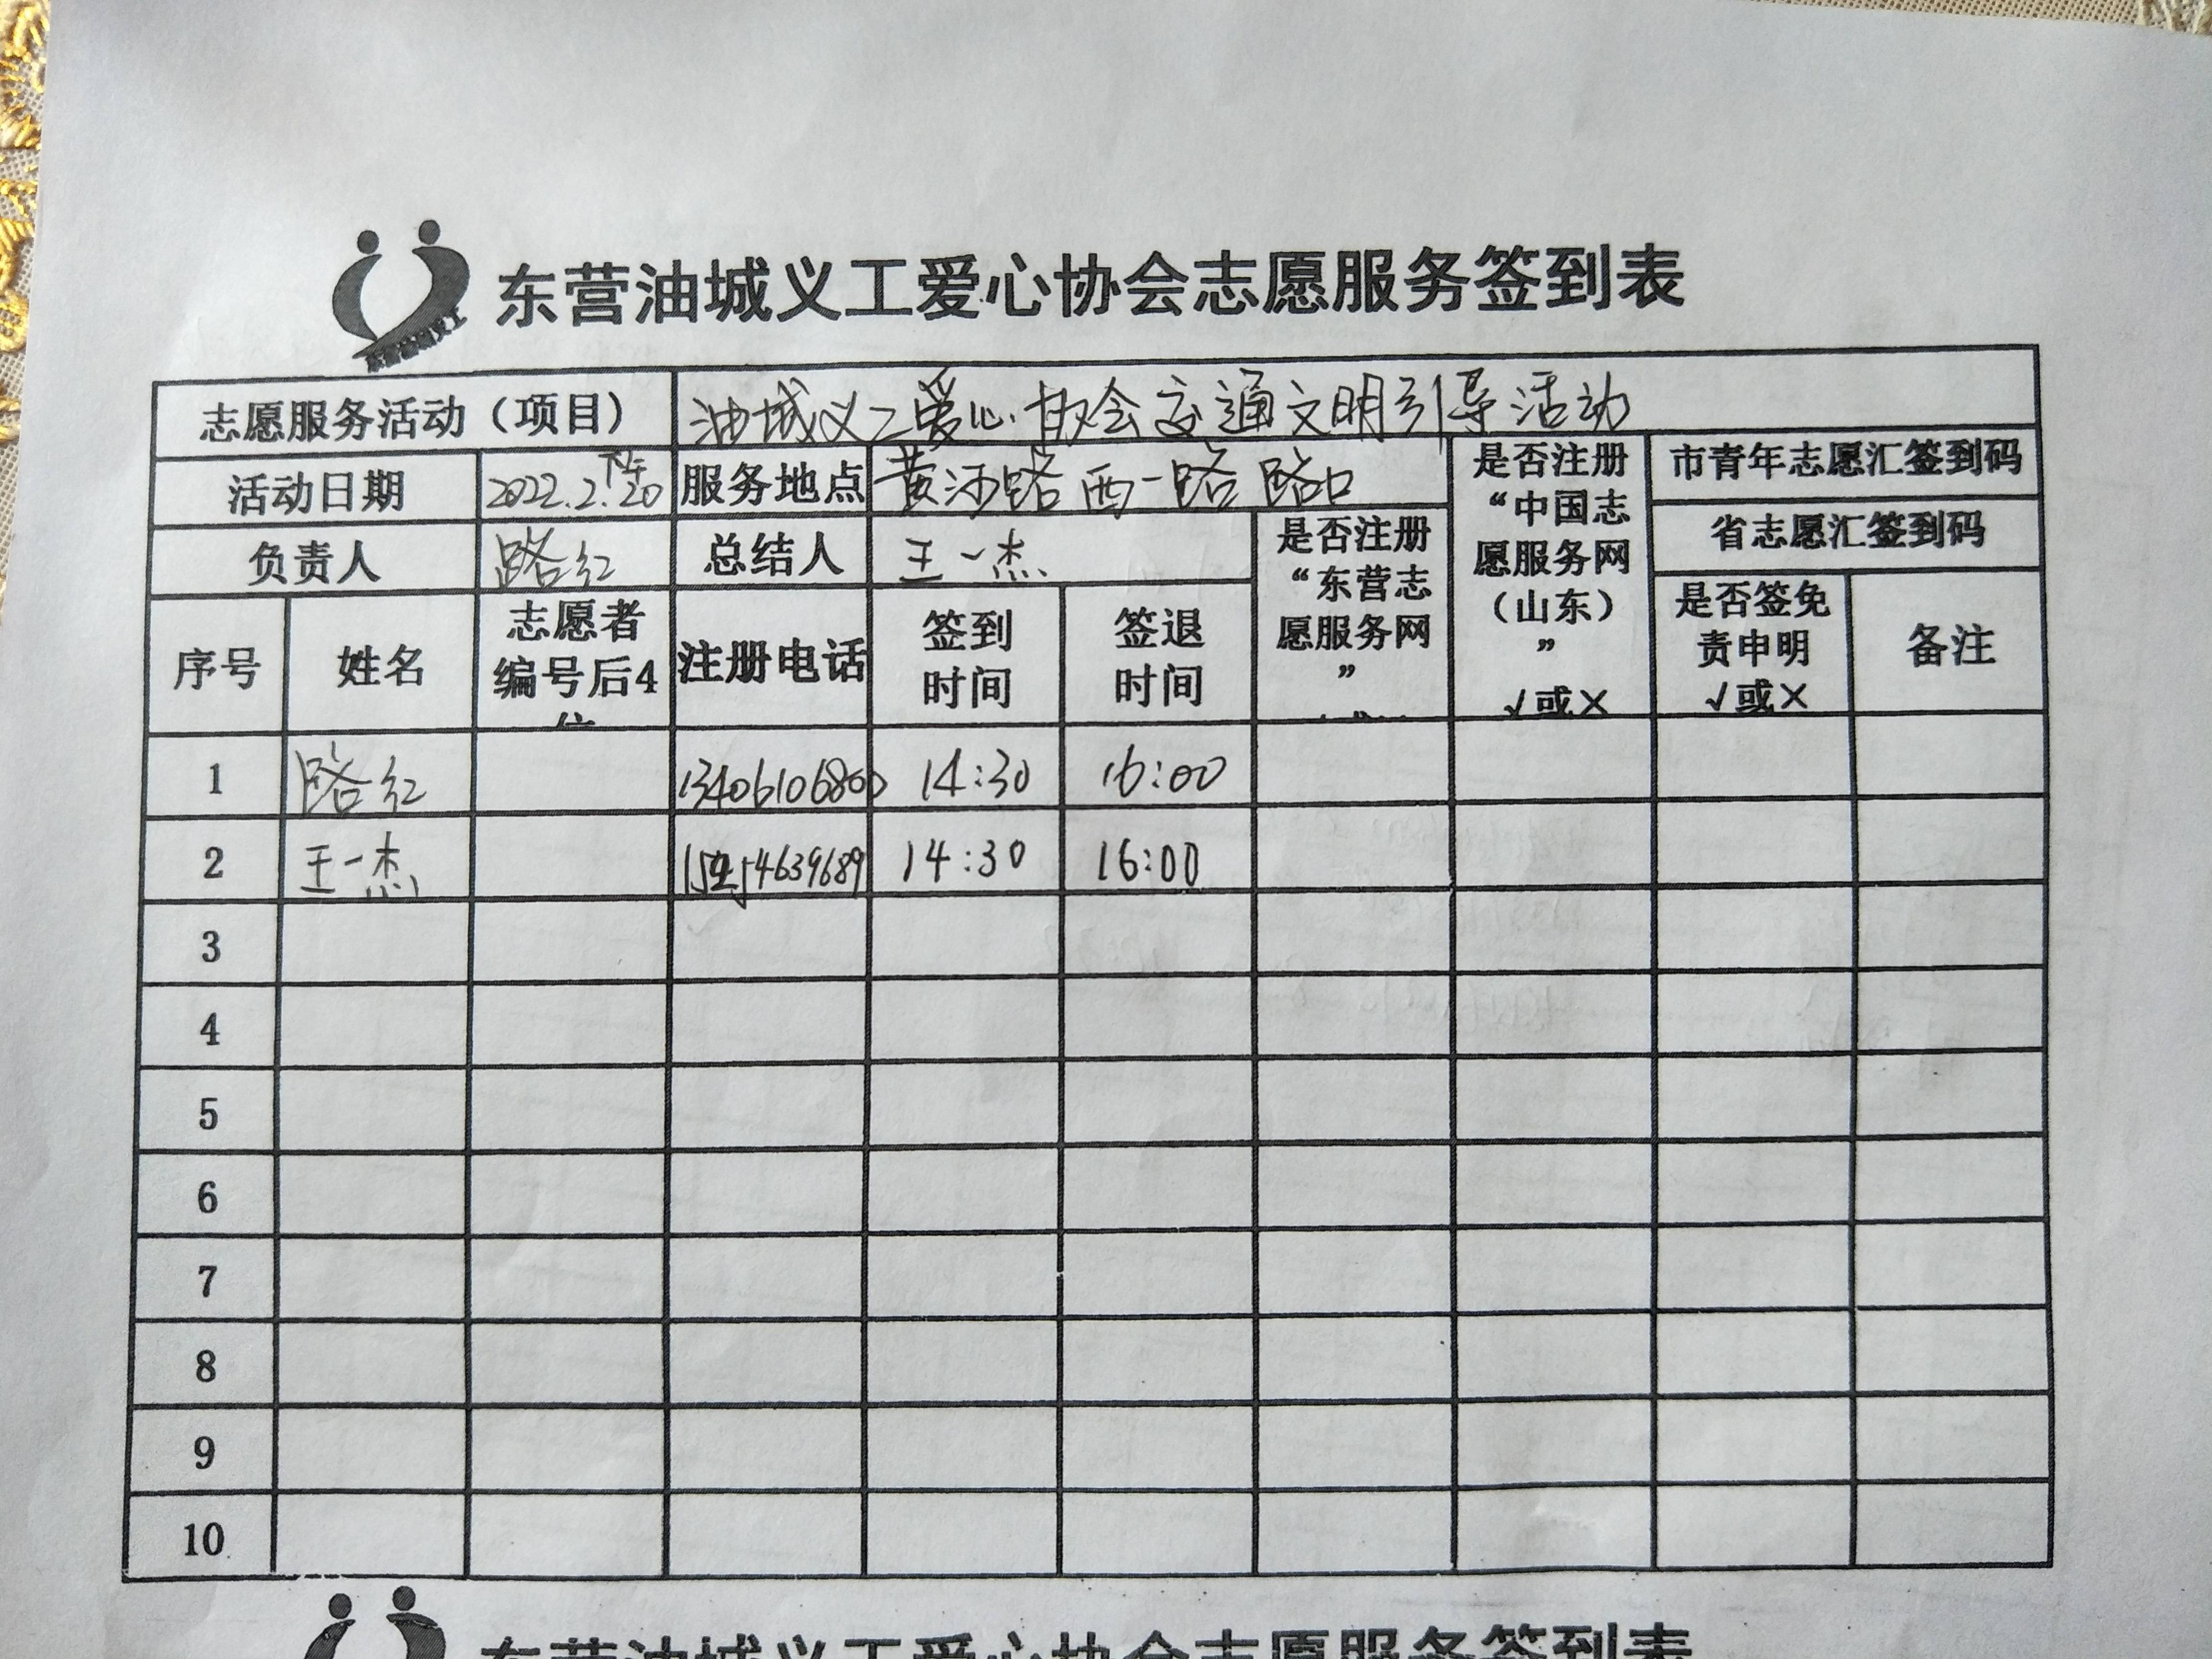 东营油城义工爱心协会志愿服务签到表
东营油城义工
志愿服务活动（项目） 油城义工爱心协会交通文明引导活动
活动日期 2022.2.20 下午 服务地点 黄河路西一路路口 是否注册“中国志愿服务网（山东）” √或× 市青年志愿汇签到码
省志愿汇签到码
负责人 路红 总结人 王一杰 是否注册“东营志愿服务网”
序号 姓名 志愿者编号后4位 注册电话 签到时间 签退时间 是否签免责申明 √或× 备注
1 路红 13406106800 14:30 16:00
2 王一杰 14:30 16:00
3
4
5
6
7
8
9
10
东营油城义工爱心协会志愿服务签到表